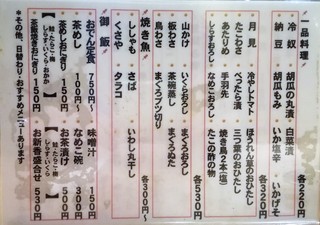 一品料理
冷奴 胡瓜の丸漬 白菜漬
納豆 胡瓜もみ いか塩辛 いかげそ
各220円
月見 冷やしトマト ほうれん草のおひたし
たこわさ べったら漬 三つ葉のおひたし
あたりめ 手羽先 焼き鳥2本(塩)
しらすおろし なめこおろし たこの酢の物
各320円
山かけ いくらおろし まぐろおろし
鳥わさ 茶碗蒸し まぐろぬた
板わさ まぐろブツ切り
各530円
焼き魚
ししゃも さば いわし丸干し
くさや タラコ
各300円
御飯
おでん定食 750円〜 味噌汁 150円
茶めし 100円〜 なめこ椀 300円
茶めしおにぎり 150円 お茶漬け 500円
【鮭・たらこ・梅 しらす・いくら・おかか】 【鮭・たらこ・梅 しらす・いくら】
茶飯焼きおにぎり 150円 お新香盛合せ 530円
*その他、日替わり・おすすめメニューあります